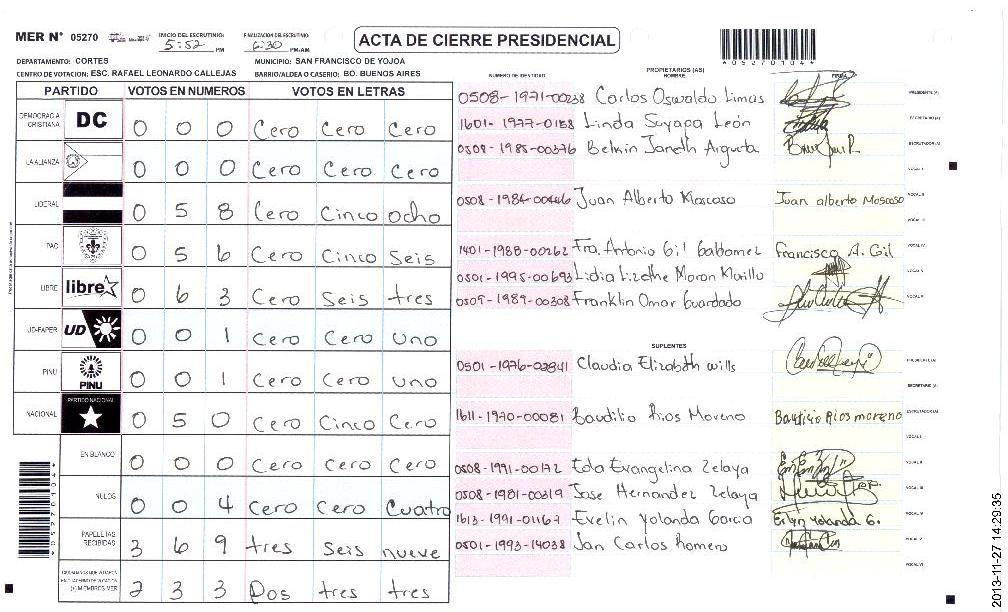 MER Nº 05270
INICIO DEL ESCRUTINIO: 5:52 PM
FINALIZACION DEL ESCRUTINIO: 6:30 PM/AM
ACTA DE CIERRE PRESIDENCIAL
*05270104*
DEPARTAMENTO: CORTES
MUNICIPIO: SAN FRANCISCO DE YOJOA
CENTRO DE VOTACION: ESC. RAFAEL LEONARDO CALLEJAS
BARRIO/ALDEA O CASERIO: BO. BUENOS AIRES
PARTIDO VOTOS EN NUMEROS VOTOS EN LETRAS
DEMOCRACIA CRISTIANA DC 0 0 0 Cero Cero Cero
LA ALIANZA 0 0 0 Cero Cero Cero
LIBERAL 0 5 8 Cero Cinco ocho
PAC 0 5 6 Cero Cinco Seis
LIBRE libre 0 6 3 Cero Seis tres
UD-FAPER UD 0 0 1 Cero Cero uno
PINU PINU 0 0 1 Cero Cero uno
NACIONAL PARTIDO NACIONAL 0 5 0 Cero Cinco Cero
EN BLANCO 0 0 0 Cero Cero Cero
NULOS 0 0 4 Cero Cero Cuatro
PAPELETAS RECIBIDAS 3 6 9 tres Seis nueve
CIUDADANOS QUE VOTARON EN CUADERNO DE VOTACION (+) MIEMBROS MER 2 3 3 Dos tres tres
*05270104*
NUMERO DE IDENTIDAD PROPIETARIOS (AS) NOMBRE FIRMA
0508-1971-00238 Carlos Oswaldo Limas PRESIDENTE (A)
1601-1977-0188 Linda Suyapa León SECRETARIO (A)
0508-1985-00376 Belkin Janeth Argueta ESCRUTADOR (A)
VOCAL I
0508-1984-00446 Juan Alberto Moscoso Juan alberto Moscoso VOCAL II
VOCAL III
1401-1988-00262 Fra. Antonio Gil Francisco A. Gil VOCAL IV
0501-1995-00693 Lidia Lizethe Moran VOCAL V
0509-1989-00308 Franklin Omar Guardado VOCAL VI
SUPLENTES
0501-1976-02841 Claudia Elizabeth wills PRESIDENTE (A)
SECRETARIO (A)
1611-1970-00081 Baudilio Rios Moreno Baudilio Rios moreno ESCRUTADOR (A)
VOCAL I
0508-1991-00172 Eda Evangelina Zelaya VOCAL II
0508-1981-00319 Jose Hernandez Zelaya VOCAL III
1613-1991-01167 Evelin Yolanda Garcia Evlyn Yolanda G. VOCAL IV
0501-1993-14038 Jan Carlos Romero VOCAL V
VOCAL VI
2013-11-27 14:29:35